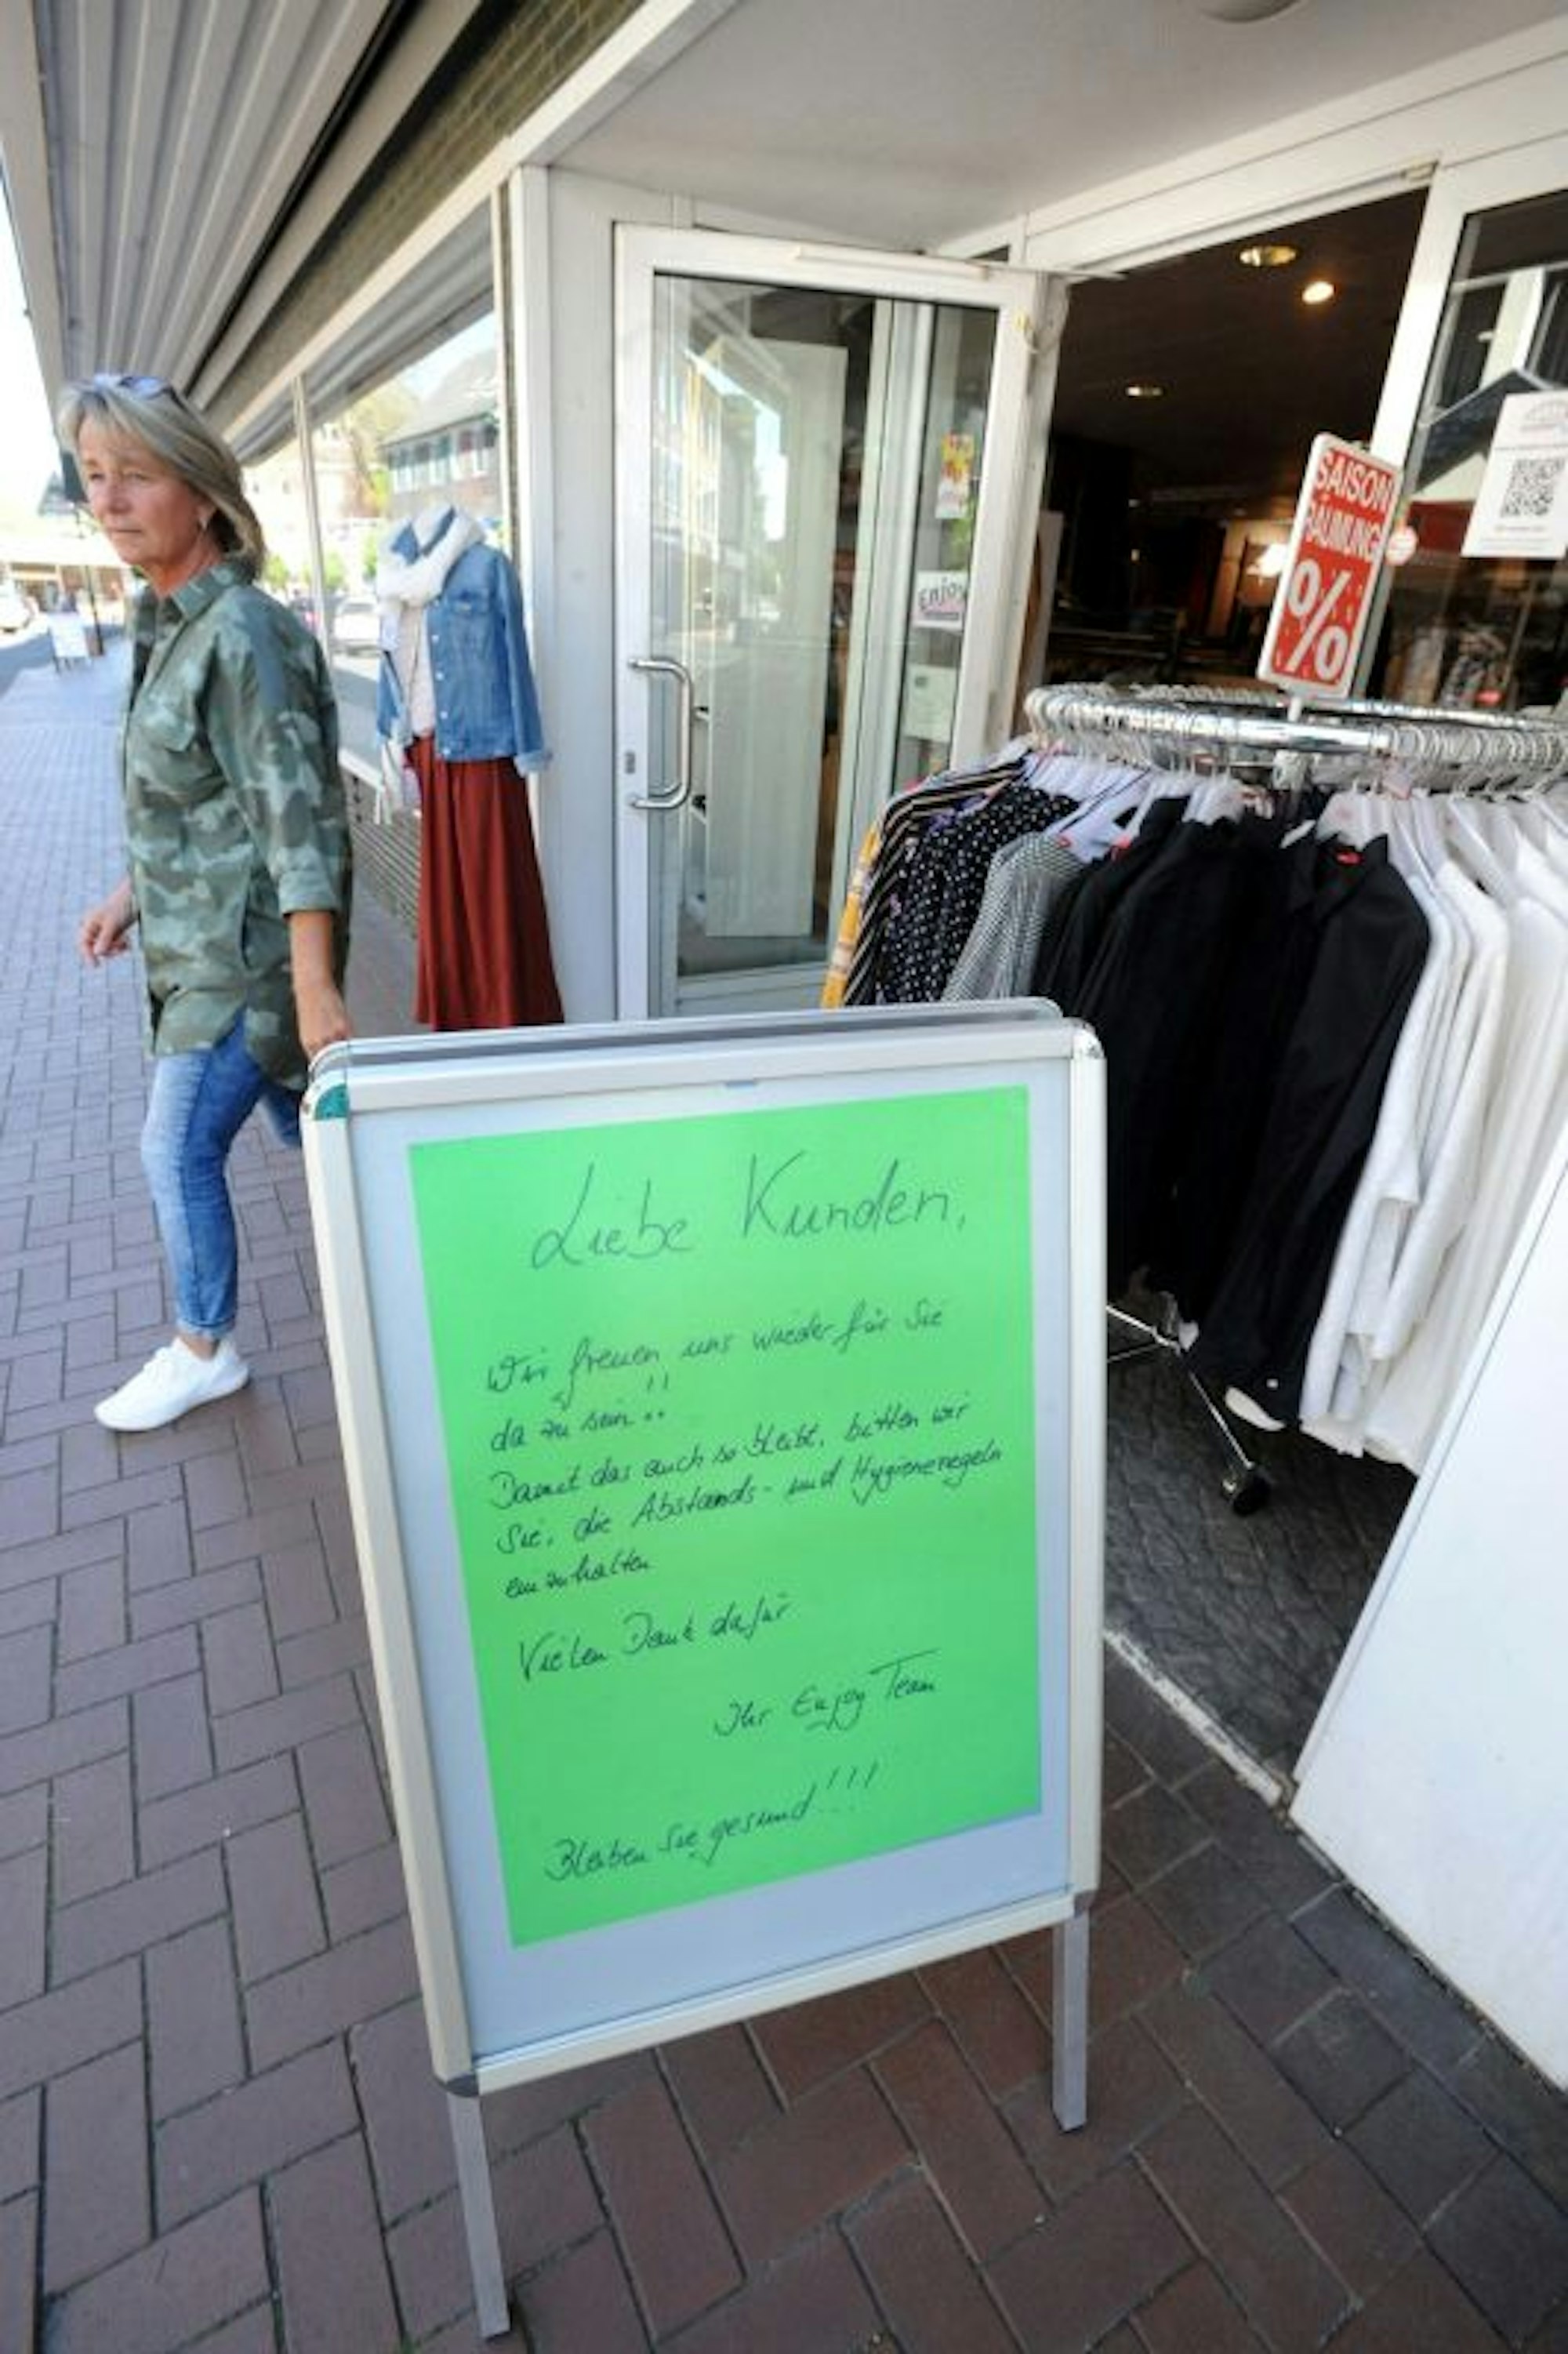 SAISON
RÄUMUNG
%
Enjoy
Liebe Kunden,
Wir freuen uns wieder für Sie
da zu sein!!
Damit das auch so bleibt, bitten wir
Sie, die Abstands- und Hygieneregeln
einzuhalten
Vielen Dank dafür
Ihr Enjoy Team
Bleiben Sie gesund!!!